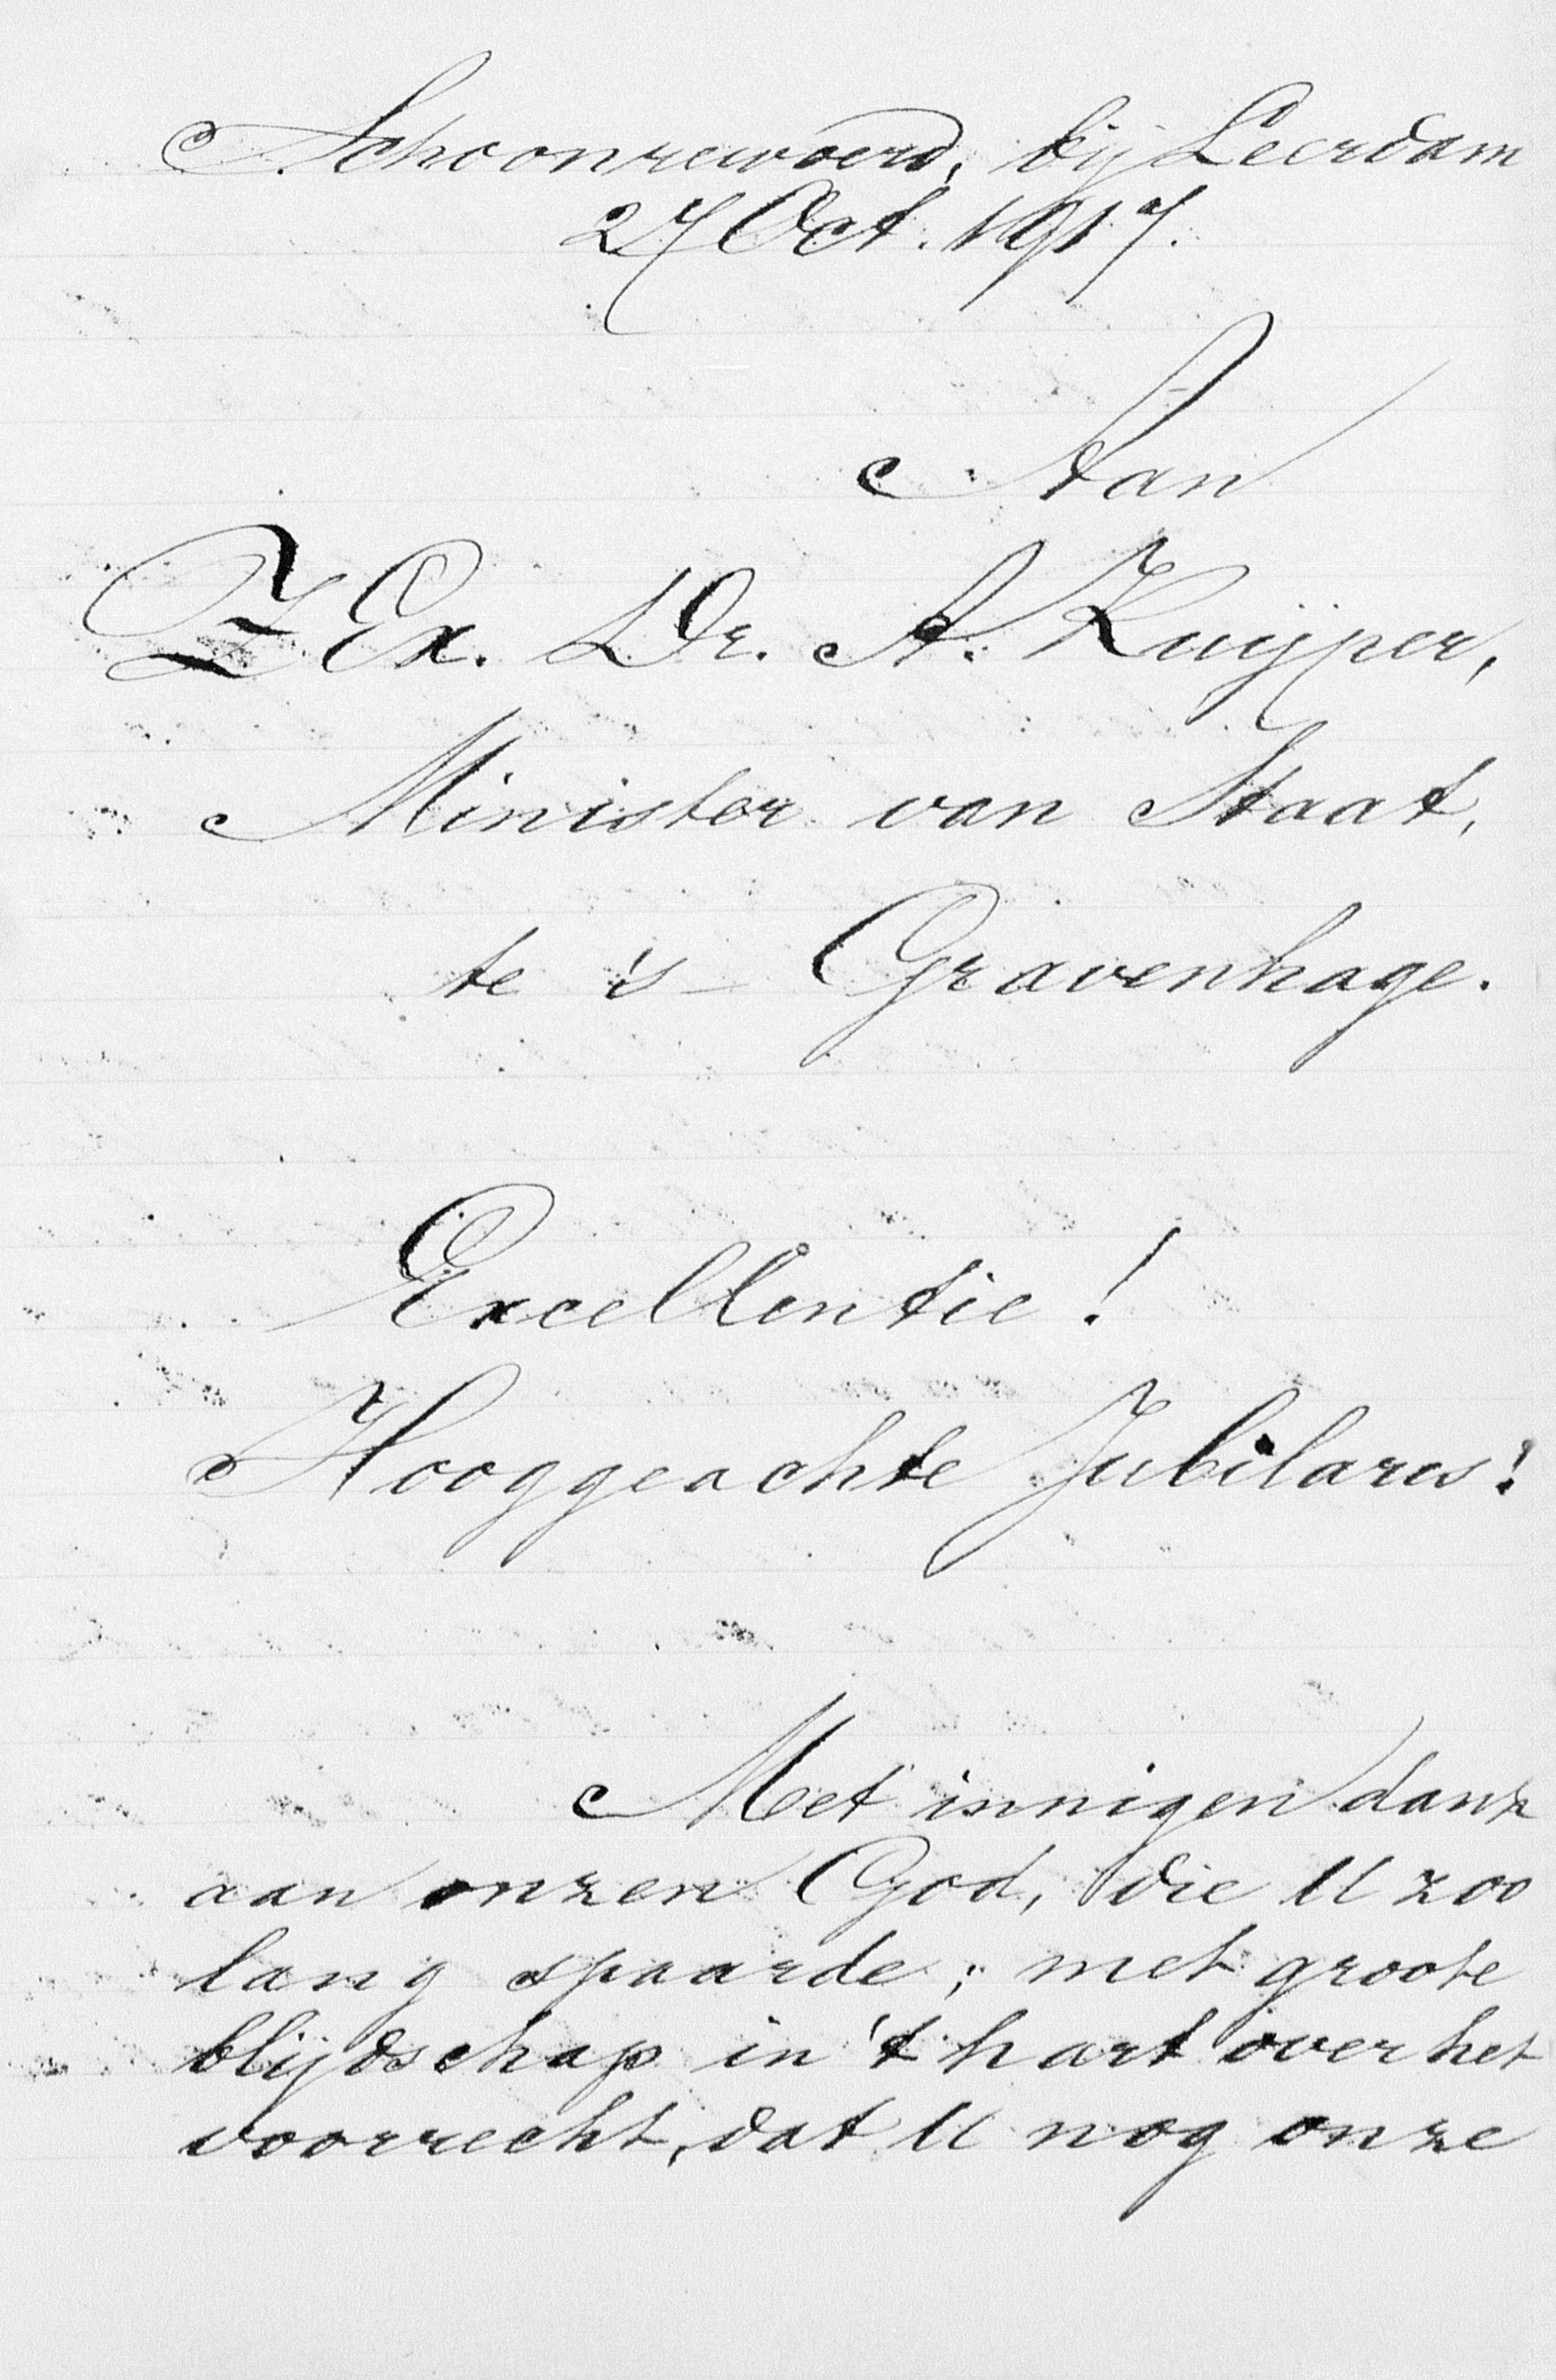 Schoonrewoerd, bij Leerdam
27 Oct. 1917.
Aan
Z Ex. Dr. A. Kuijper,
Minister van Staat,
te 's-Gravenhage.
Excellentie!
Hooggeachte Jubilaris!
Met innigen dank
aan onzen God, die U zoo
lang spaarde; met groote
blijdschap in 't hart over het
voorrecht, dat U nog onze